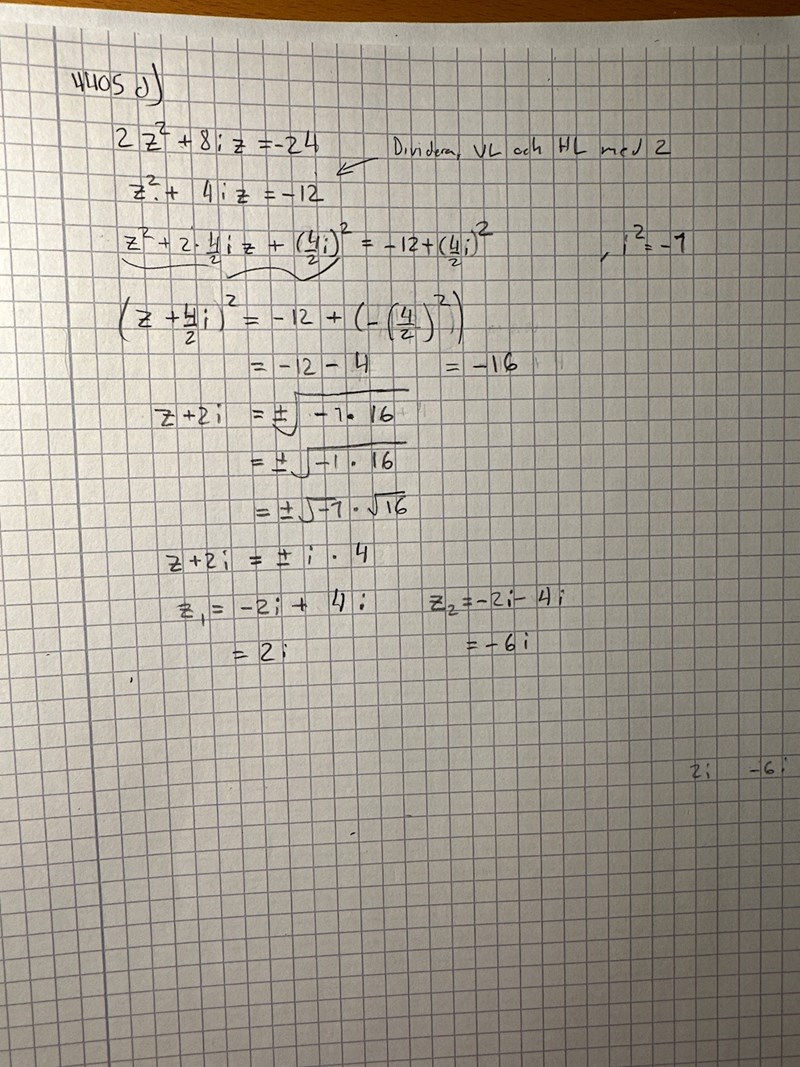 4405 d)
2z² + 8iz = -24
Dividera, VL och HL med 2
z² + 4iz = -12
z² + 2·4/2 iz + (4/2 i)² = -12 + (4/2 i)² , i² = -1
(z + 4/2 i)² = -12 + (-(4/2)²)
= -12 - 4 = -16
z + 2i = ±√(-1·16)
= ±√(-1·16)
= ±√-1 · √16
z + 2i = ± i · 4
z₁ = -2i + 4i z₂ = -2i - 4i
= 2i = -6i
2i -6i